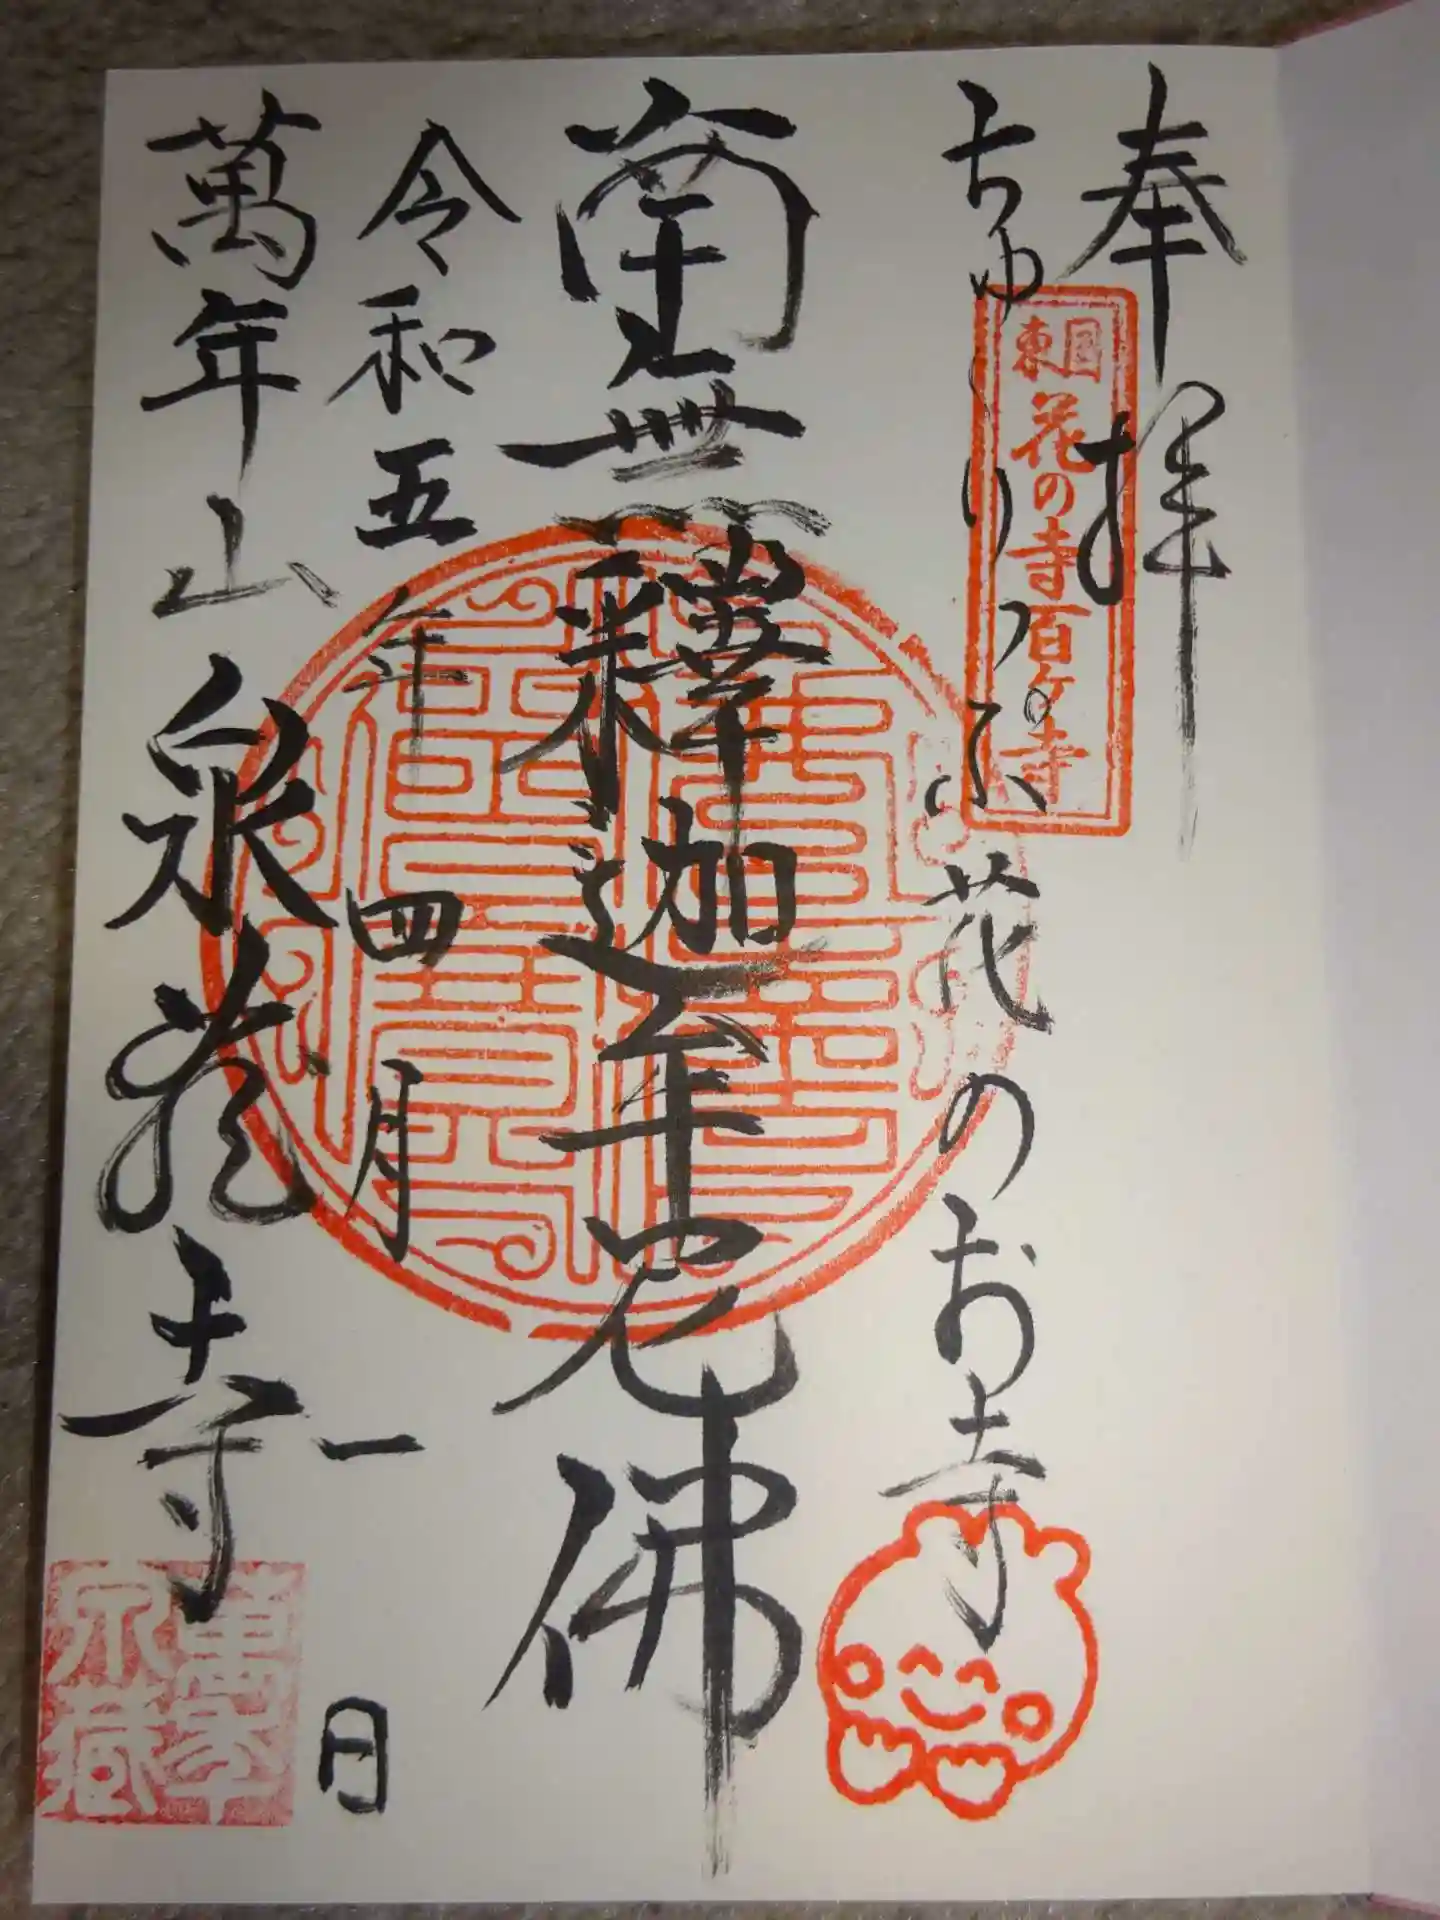 奉拝
東国
花の寺百ヶ寺
ちゅーりっぷ花のお寺
南無釋迦牟尼佛
令和五年四月一日
萬年山泉蔵寺